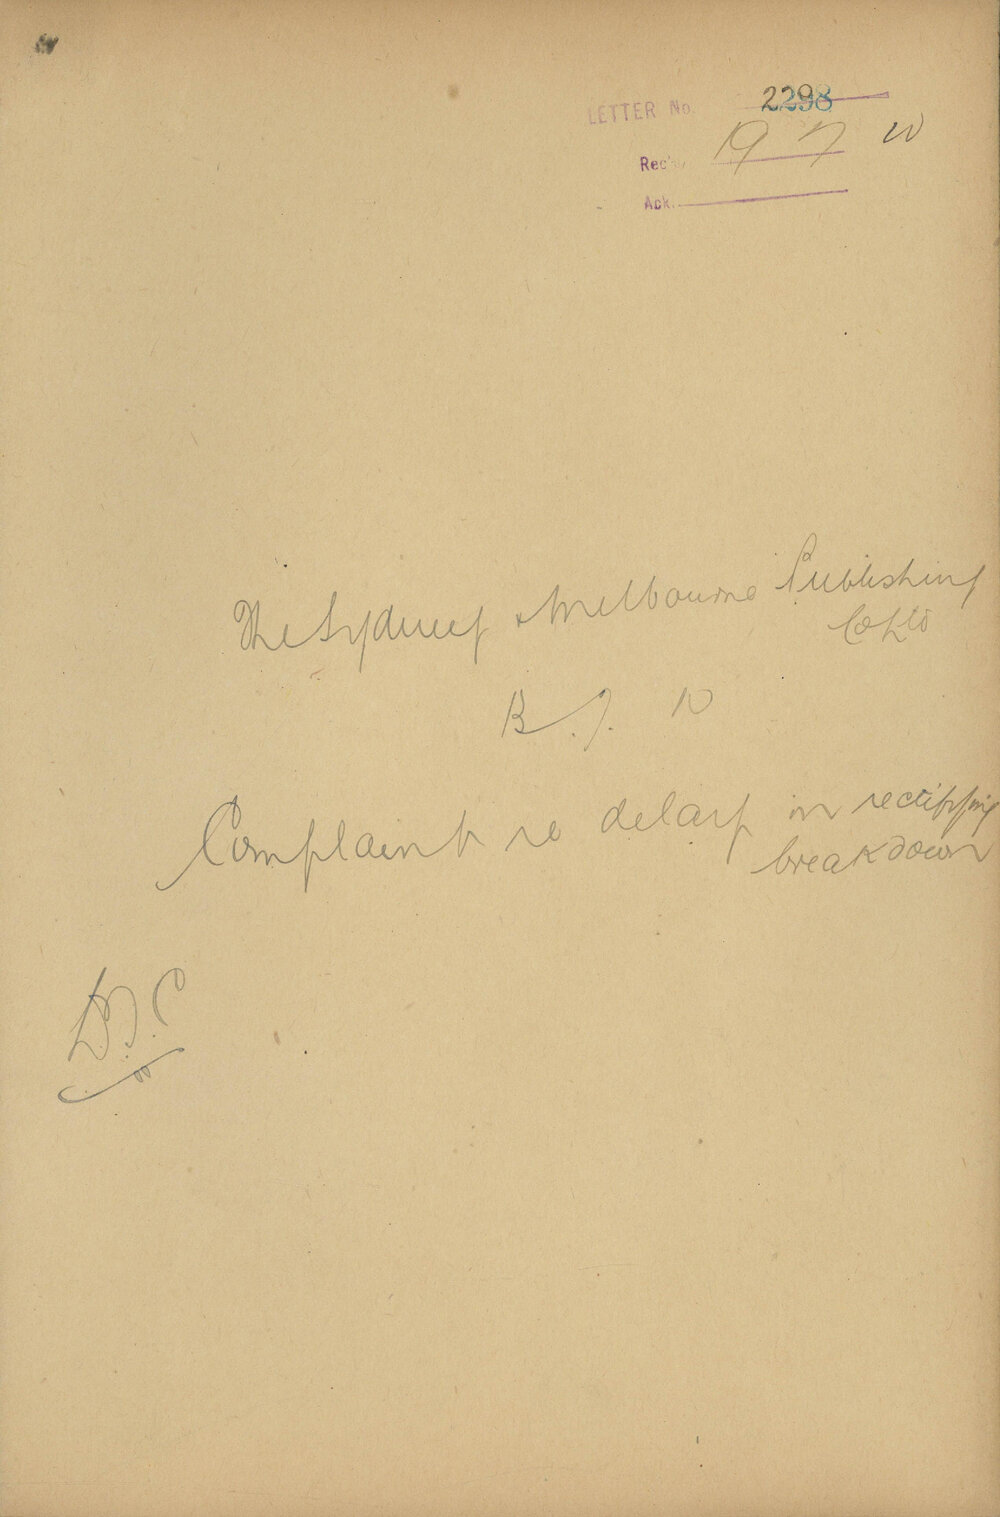 LETTER No. 2298
Rec'd 19 7 10
Ack.
The Sydney & Melbourne Publishing
Co Ltd
10
Complaint re delay in rectifying
breakdown